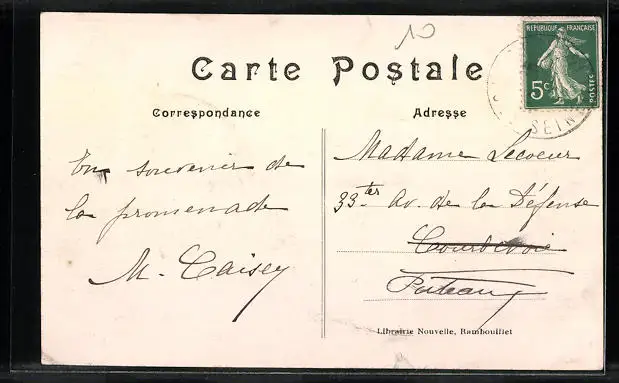 10
Carte Postale
REPUBLIQUE FRANÇAISE
5c
POSTES
SEINE
Correspondance
Adresse
En souvenir de
la promenade
M. Caisey
Madame Lecoeur
33ter Av. de la Défense
Courbevoie
Puteaux
Librairie Nouvelle, Rambouillet